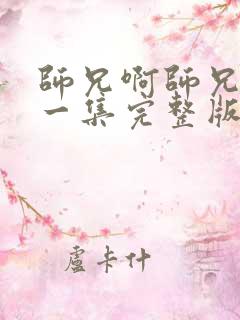 師兄啊師兄
一集完整版
盧卡什